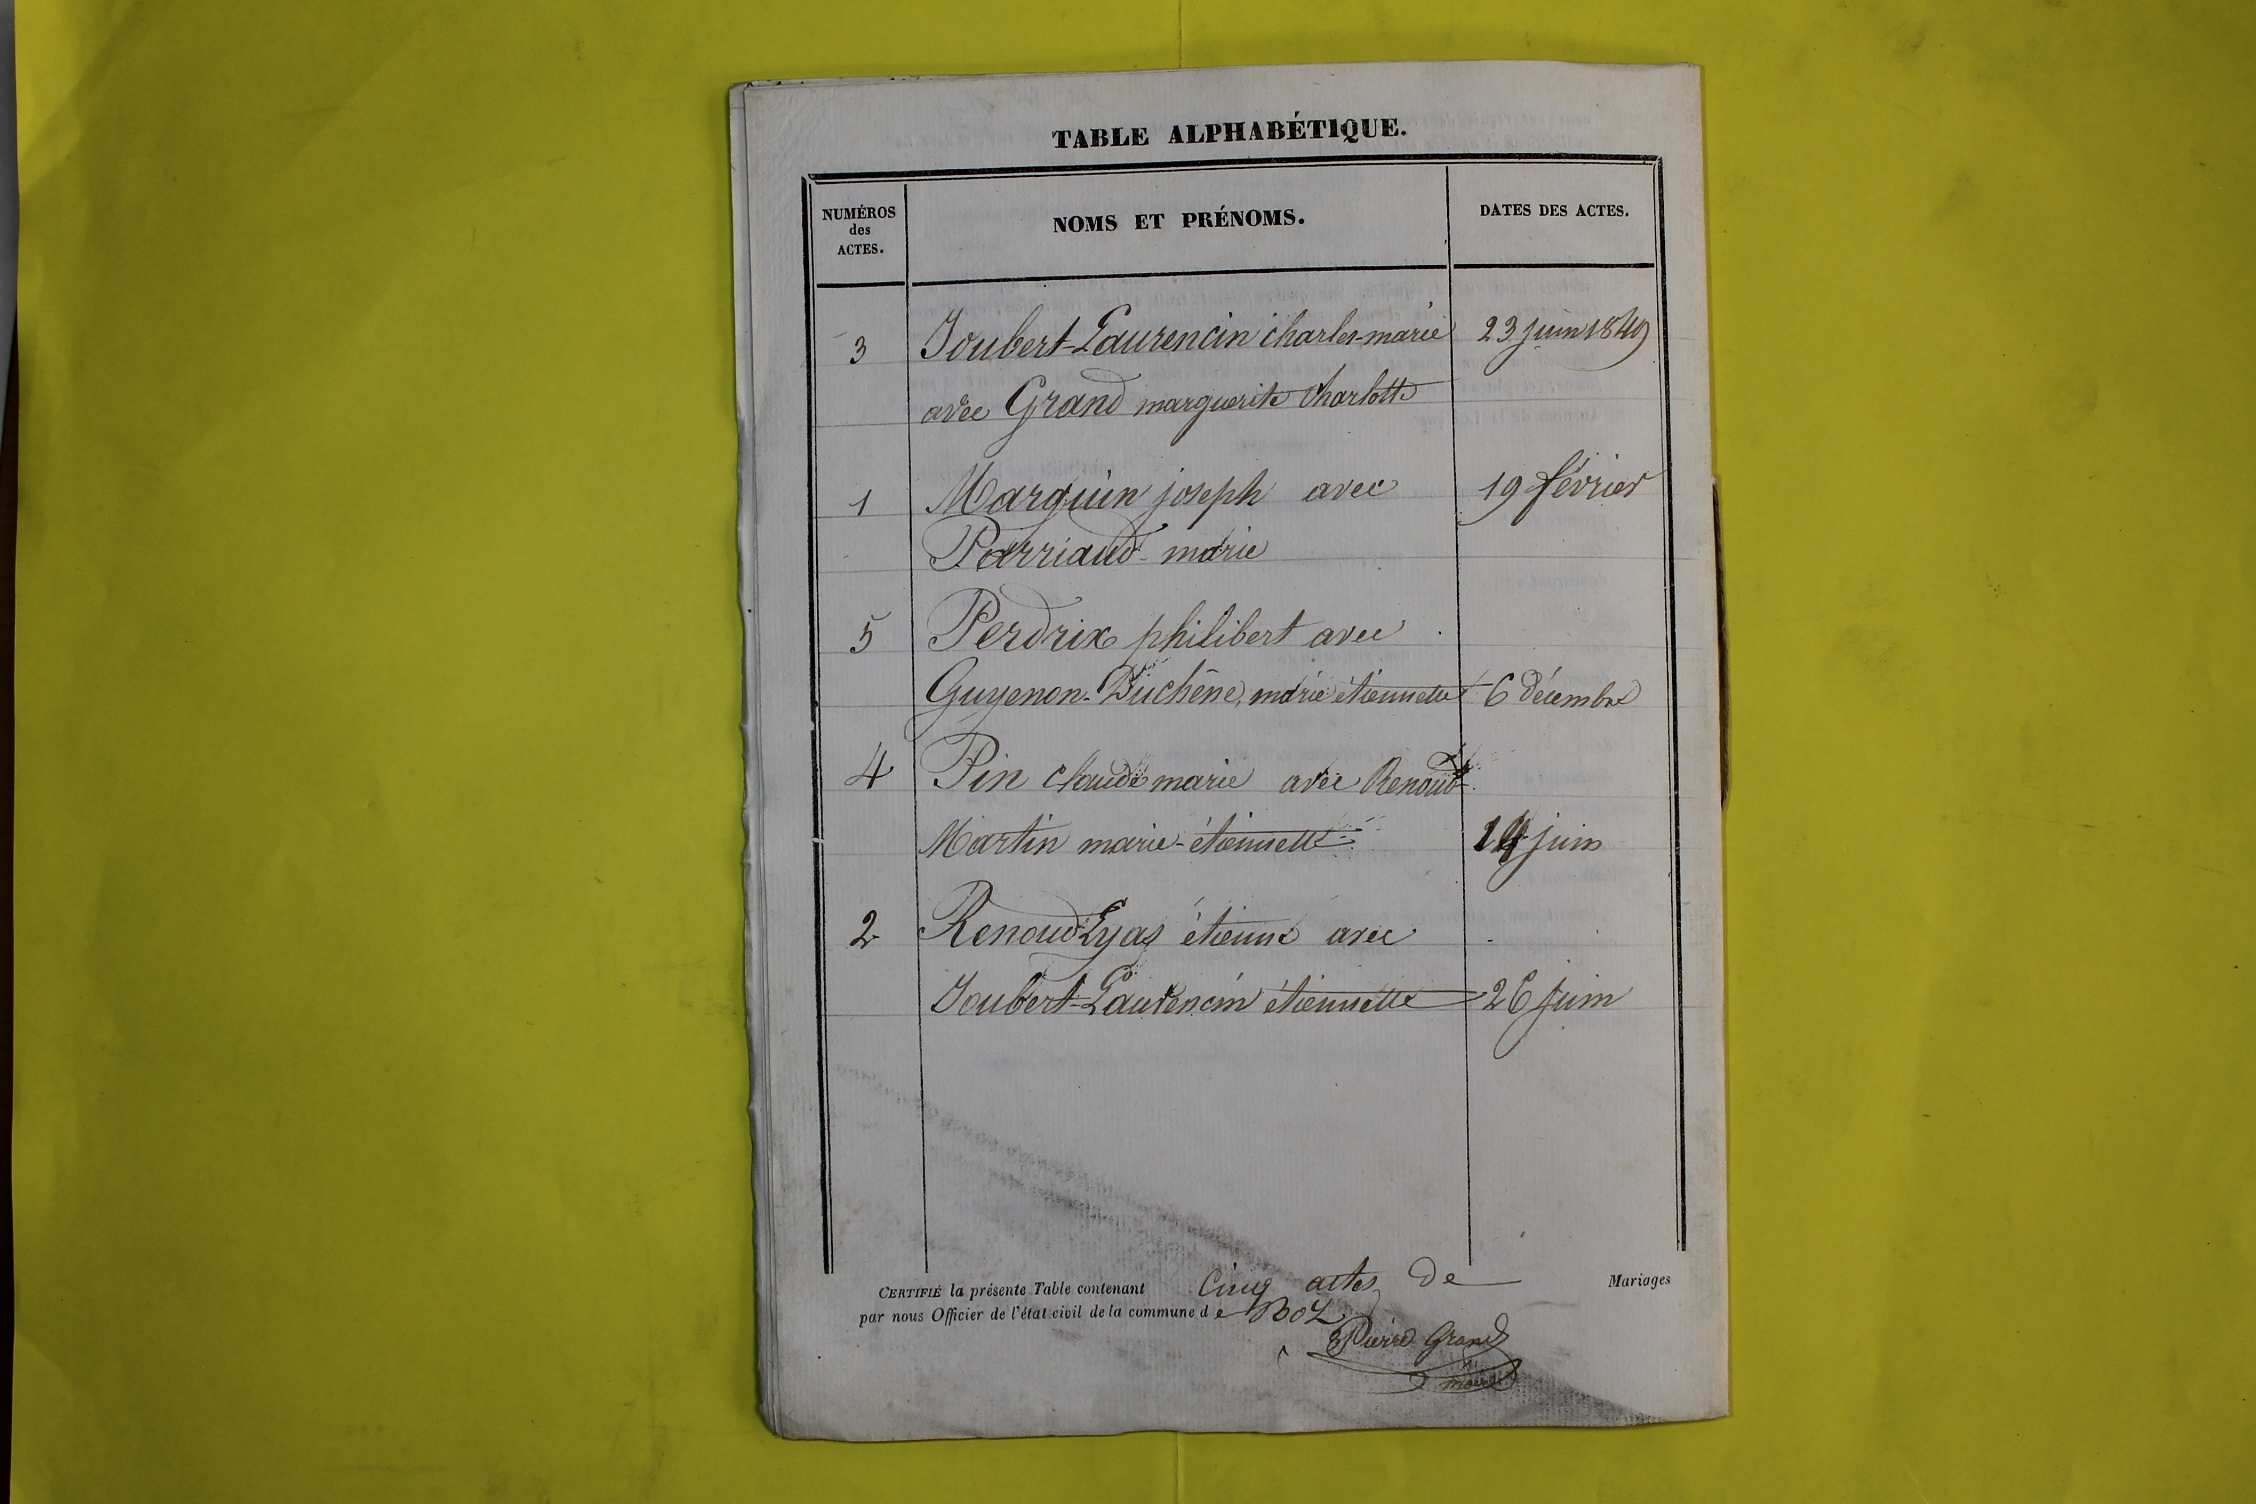 TABLE ALPHABÉTIQUE.
NUMÉROS
des
ACTES.
NOMS ET PRÉNOMS.
DATES DES ACTES.
3 Joubert-Laurencin charles-marie 23 juin 1849
avec Grand marguerite Charlotte
1 Marguin joseph avec 19 février
Parriaud marie
5 Perdrix philibert avec
Guyenon-Duchêne, marie étiennette 6 décembre
4 Pin claude marie avec Renoud
Martin marie-étiennette juin
2 Renoud Lyas étienne avec
Joubert-Laurencin étiennette 26 juin
CERTIFIÉ la présente Table contenant Cinq actes de Mariages
par nous Officier de l'état civil de la commune de Boz
Pierre Grand
maire